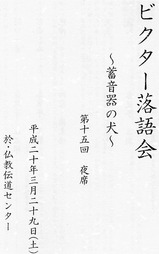 ビクター落語会
～蓄音器の犬～
第十五回　夜席
平成二十年三月二十九日(土)
於・仏教伝道センター